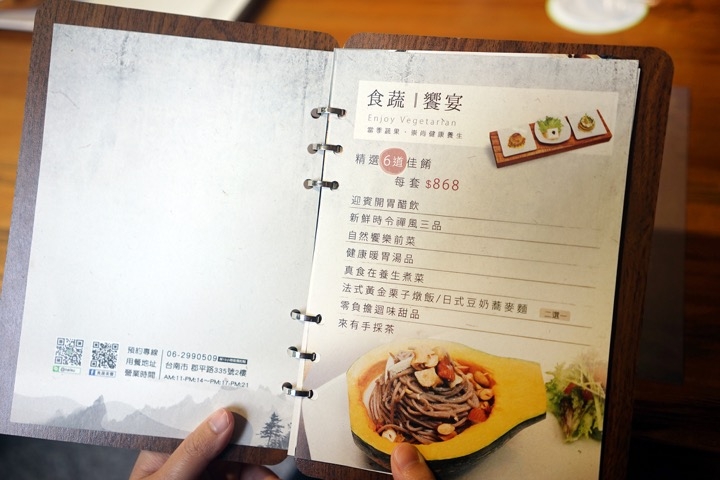 預約專線 06-2990509
用餐地址 台南市 郡平路335號2樓
營業時間 AM:11-PM:14～PM:17-PM:21
食蔬｜饗宴
Enjoy Vegetarian
當季蔬果・崇尚健康養生
精選6道佳餚
每套 $868
迎賓開胃醋飲
新鮮時令禪風三品
自然饗樂前菜
健康暖胃湯品
真食在養生煮菜
法式黃金栗子燉飯/日式豆奶蕎麥麵 二選一
零負擔迴味甜品
來有手採茶